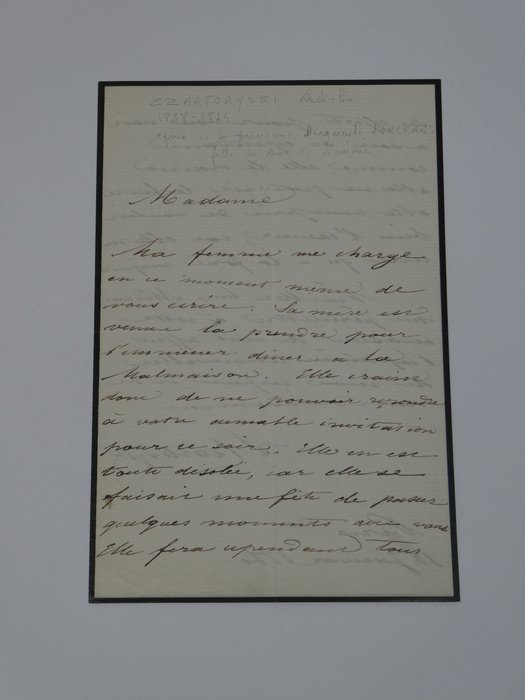 CZARTORYSKI Ladislas
1828-1894
épouse de la princesse Marguerite d'ORLEANS
fille du Duc de Nemours
Madame
Ma femme me charge
en ce moment même de
vous écrire. Sa mère est
venue la prendre pour
l'emmener diner à la
Malmaison. Elle craint
donc de ne pouvoir repondre
à votre aimable invitation
pour ce soir. Elle en est
toute désolée, car elle se
faisait une fête de passer
quelques moments avec vous
Elle fera cependant tous